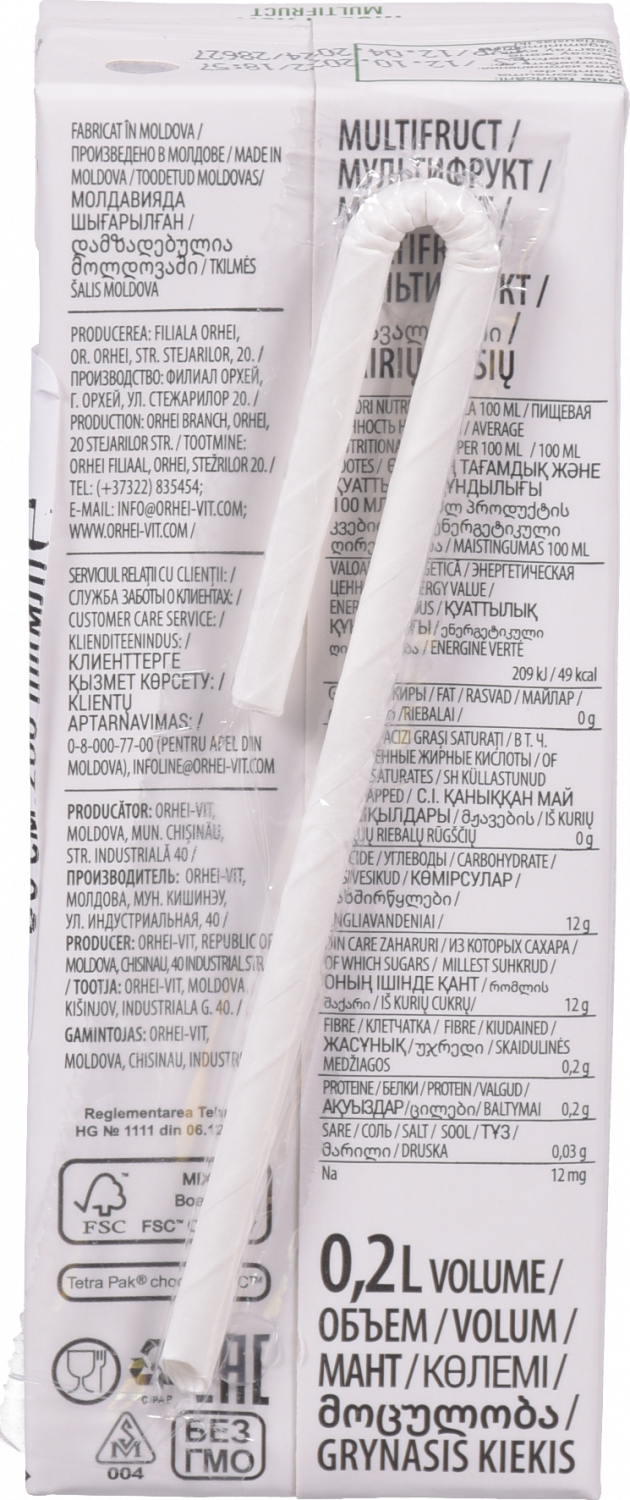 MULTIFRUCT
2022/18:57
2024/28627
12.10.
12.04
FABRICAT ÎN MOLDOVA /
ПРОИЗВЕДЕНО В МОЛДОВЕ / MADE IN
MOLDOVA / TOODETUD MOLDOVAS/
МОЛДАВИЯДА
ШЫҒАРЫЛҒАН /
დამზადებულია
მოლდოვაში / TKILMĖS
ŠALIS MOLDOVA
PRODUCEREA: FILIALA ORHEI,
OR. ORHEI, STR. STEJARILOR, 20. /
ПРОИЗВОДСТВО: ФИЛИАЛ ОРХЕЙ,
Г. ОРХЕЙ, УЛ. СТЕЖАРИЛОР 20. /
PRODUCTION: ORHEI BRANCH, ORHEI,
20 STEJARILOR STR. / TOOTMINE:
ORHEI FILIAAL, ORHEI, STEŽRILOR 20. /
TEL: (+37322) 835454;
E-MAIL: INFO@ORHEI-VIT.COM;
WWW.ORHEI-VIT.COM /
SERVICIUL RELAȚII CU CLIENȚII: /
СЛУЖБА ЗАБОТЫ О КЛИЕНТАХ: /
CUSTOMER CARE SERVICE: /
KLIENDITEENINDUS: /
КЛИЕНТТЕРГЕ
ҚЫЗМЕТ КӨРСЕТУ: /
KLIENTŲ
APTARNAVIMAS: /
0-8-000-77-00 (PENTRU APEL DIN
MOLDOVA), INFOLINE@ORHEI-VIT.COM
PRODUCĂTOR: ORHEI-VIT,
MOLDOVA, MUN. CHIȘINĂU,
STR. INDUSTRIALĂ 40 /
ПРОИЗВОДИТЕЛЬ: ORHEI-VIT,
МОЛДОВА, МУН. КИШИНЭУ,
УЛ. ИНДУСТРИАЛЬНАЯ, 40 /
PRODUCER: ORHEI-VIT, REPUBLIC OF
MOLDOVA, CHISINAU, 40 INDUSTRIAL STR
/ TOOTJA: ORHEI-VIT, MOLDOVA
KIŠINJOV, INDUSTRIALA G. 40. /
GAMINTOJAS: ORHEI-VIT,
MOLDOVA, CHISINAU, INDUSTR
Reglementarea Teh
HG № 1111 din 06.12
MIX
Boa
FSC FSC™
Tetra Pak® choo C™
C/PAP
EAC
004
БЕЗ
ГМО
MULTIFRUCT /
МУЛЬТИФРУКТ /
/
TIFR
ЬТИ КТ /
/
AIRIŲ SIŲ
ORI NUTR A 100 ML / ПИЩЕВАЯ
ННОСТЬ / AVERAGE
NUTRITIONA PER 100 ML / 100 ML
ТАҒАМДЫҚ ЖӘНЕ
ҚУАТТ ҚҰНДЫЛЫҒЫ
100 МЛ პროდუქტის
კვები ენერგეტიკული
ღირე / MAISTINGUMAS 100 ML
VALOA GETICĂ / ЭНЕРГЕТИЧЕСКАЯ
ЦЕНН ERGY VALUE /
ENER US / ҚУАТТЫЛЫҚ
ҚҰ Ы / ენერგეტიკული
/ ENERGINĖ VERTĖ
209 kJ / 49 kcal
ЖИРЫ / FAT / RASVAD / МАЙЛАР /
/RIEBALAI / 0 g
ACIZI GRAȘI SATURAȚI / В Т. Ч.
ЕННЫЕ ЖИРНЫЕ КИСЛОТЫ / OF
SATURATES / SH KÜLLASTUNUD
APPED / С.І. ҚАНЫҚҚАН МАЙ
ҚЫЛДАРЫ / მჟავების / IŠ KURIŲ
RIEBALŲ RŪGŠČIŲ 0 g
IDE / УГЛЕВОДЫ / CARBOHYDRATE /
SIVESIKUD / КӨМІРСУЛАР /
ნახშირწყლები /
ANGLIAVANDENIAI / 12 g
DIN CARE ZAHARURI / ИЗ КОТОРЫХ САХАРА /
OF WHICH SUGARS / MILLEST SUHKRUD /
ОНЫҢ ІШІНДЕ ҚАНТ / რომლის
შაქარი / IŠ KURIŲ CUKRŲ/ 12 g
FIBRE / КЛЕТЧАТКА / FIBRE / KIUDAINED /
ЖАСҰНЫҚ / უჯრედი / SKAIDULINĖS
MEDŽIAGOS 0,2 g
PROTEINE / БЕЛКИ / PROTEIN / VALGUD /
АҚУЫЗДАР /ცილები/ BALTYMAI 0,2 g
SARE / СОЛЬ / SALT / SOOL / ТҰЗ /
მარილი / DRUSKA 0,03 g
Na 12 mg
0,2L VOLUME/
ОБЪЕМ / VOLUM /
МАHT / КӨЛЕМІ /
მოცულობა /
GRYNASIS KIEKIS